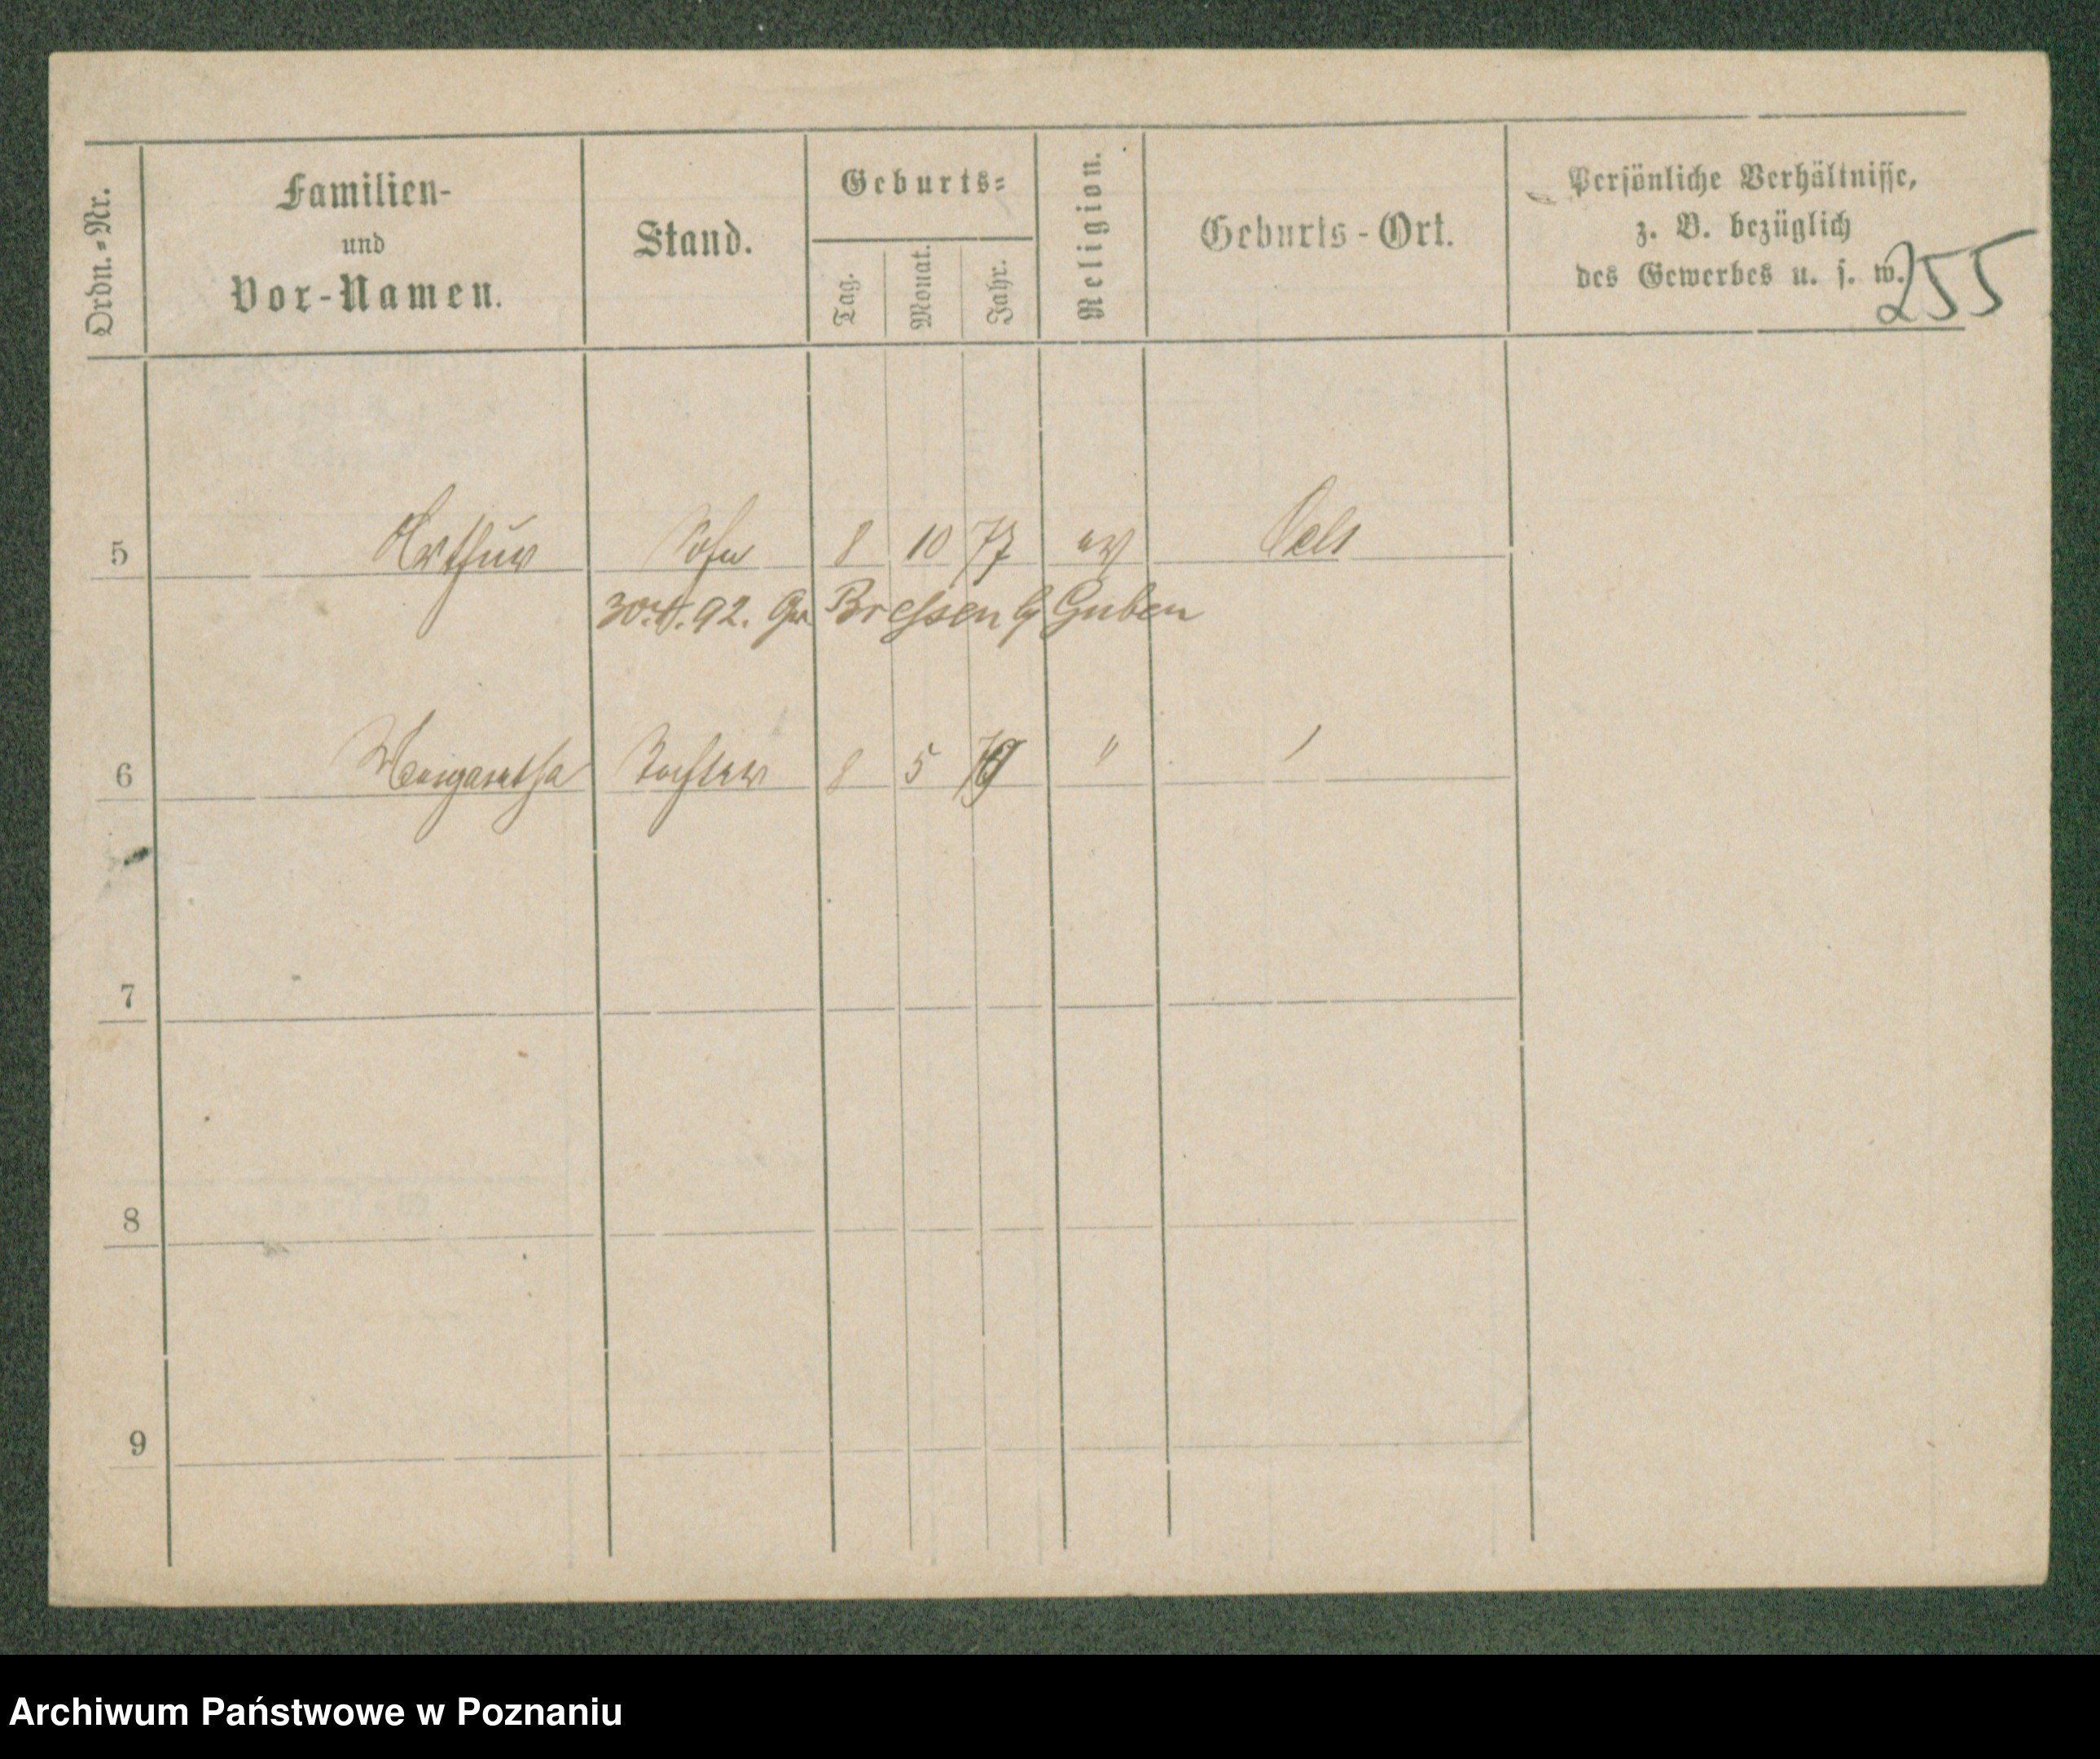 Ordn.-Nr.
Familien-
und
Vor-Namen.
Stand.
Geburts-
Tag.
Monat.
Jahr.
Religion.
Geburts-Ort.
Persönliche Verhältnisse,
z. B. bezüglich
des Gewerbes u. s. w.
255
5 Arthur Sohn 8 10 77 ev Oels
92. Gr Bressen b/ Guben
6 Margaretha Tochter 8 5 79 "
7
8
9
Archiwum Państwowe w Poznaniu